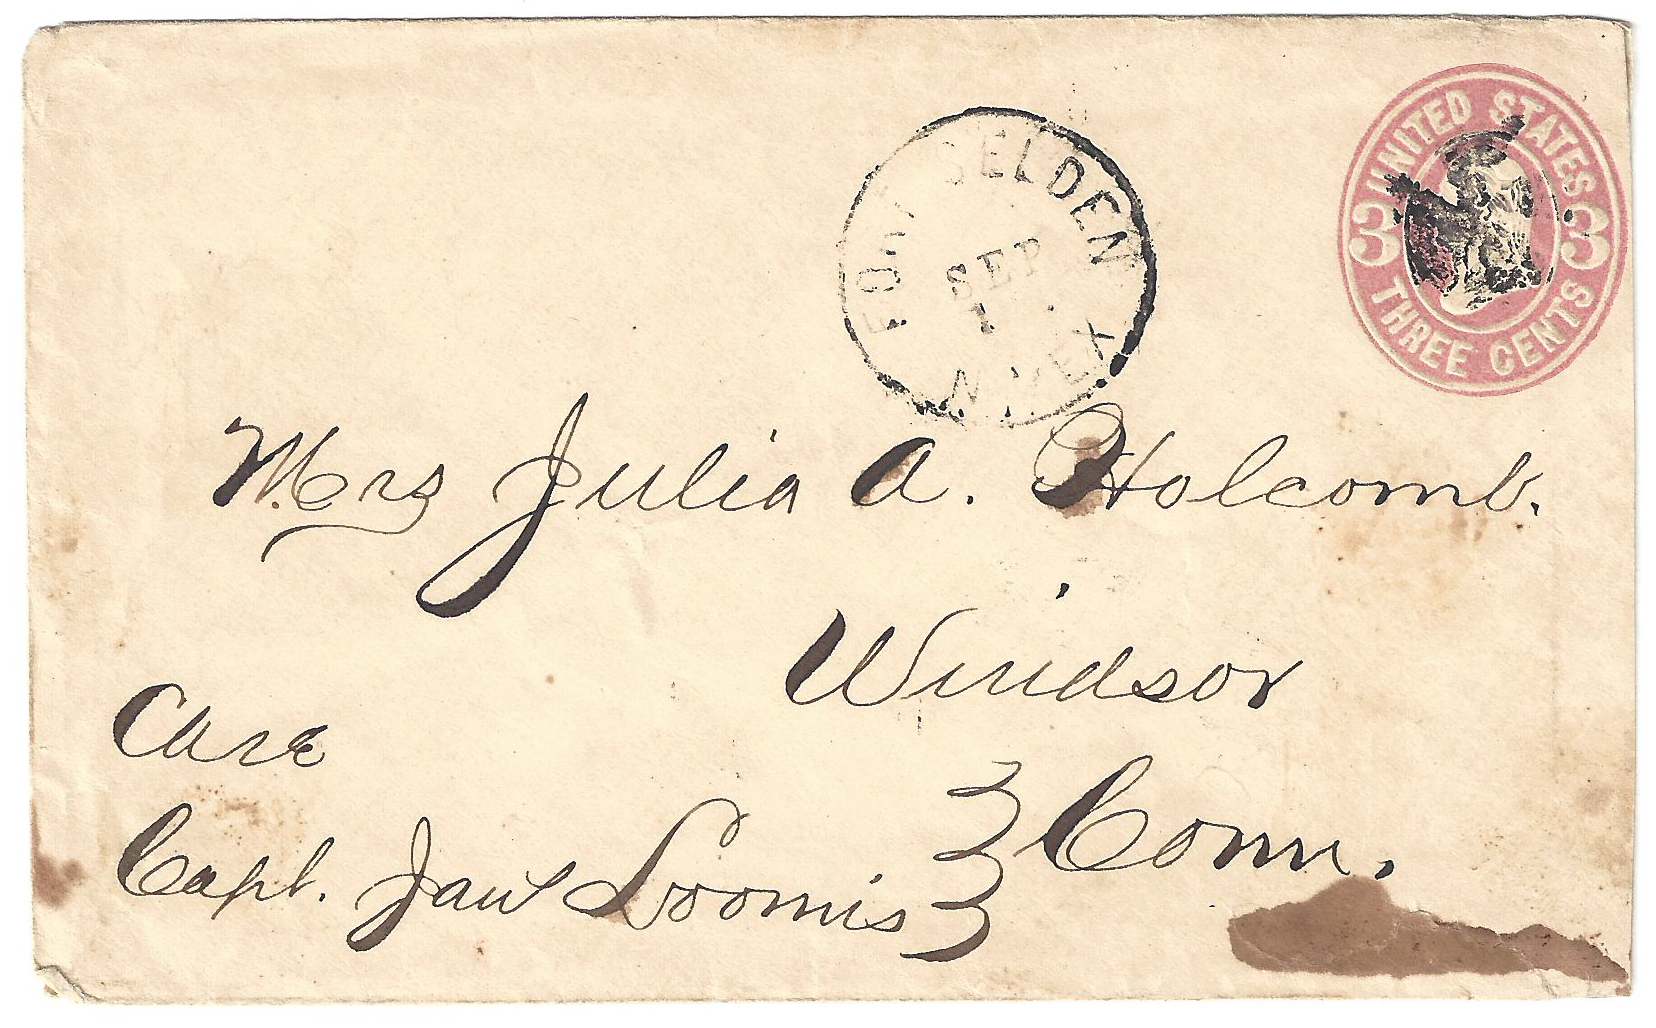 UNITED STATES
3 3
THREE CENTS
FORT SELDEN
SEP
1
N. MEX
Mrs Julia A. Holcomb.
Windsor
Conn.
Care
Capt. Loomis